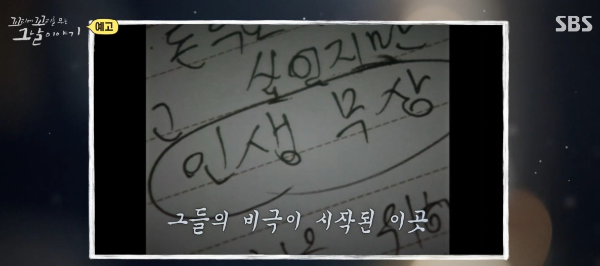 꼬리에 꼬리를 무는
그날 이야기
예고
SBS
살인지만
인생 무상
그들의 비극이 시작된 이곳